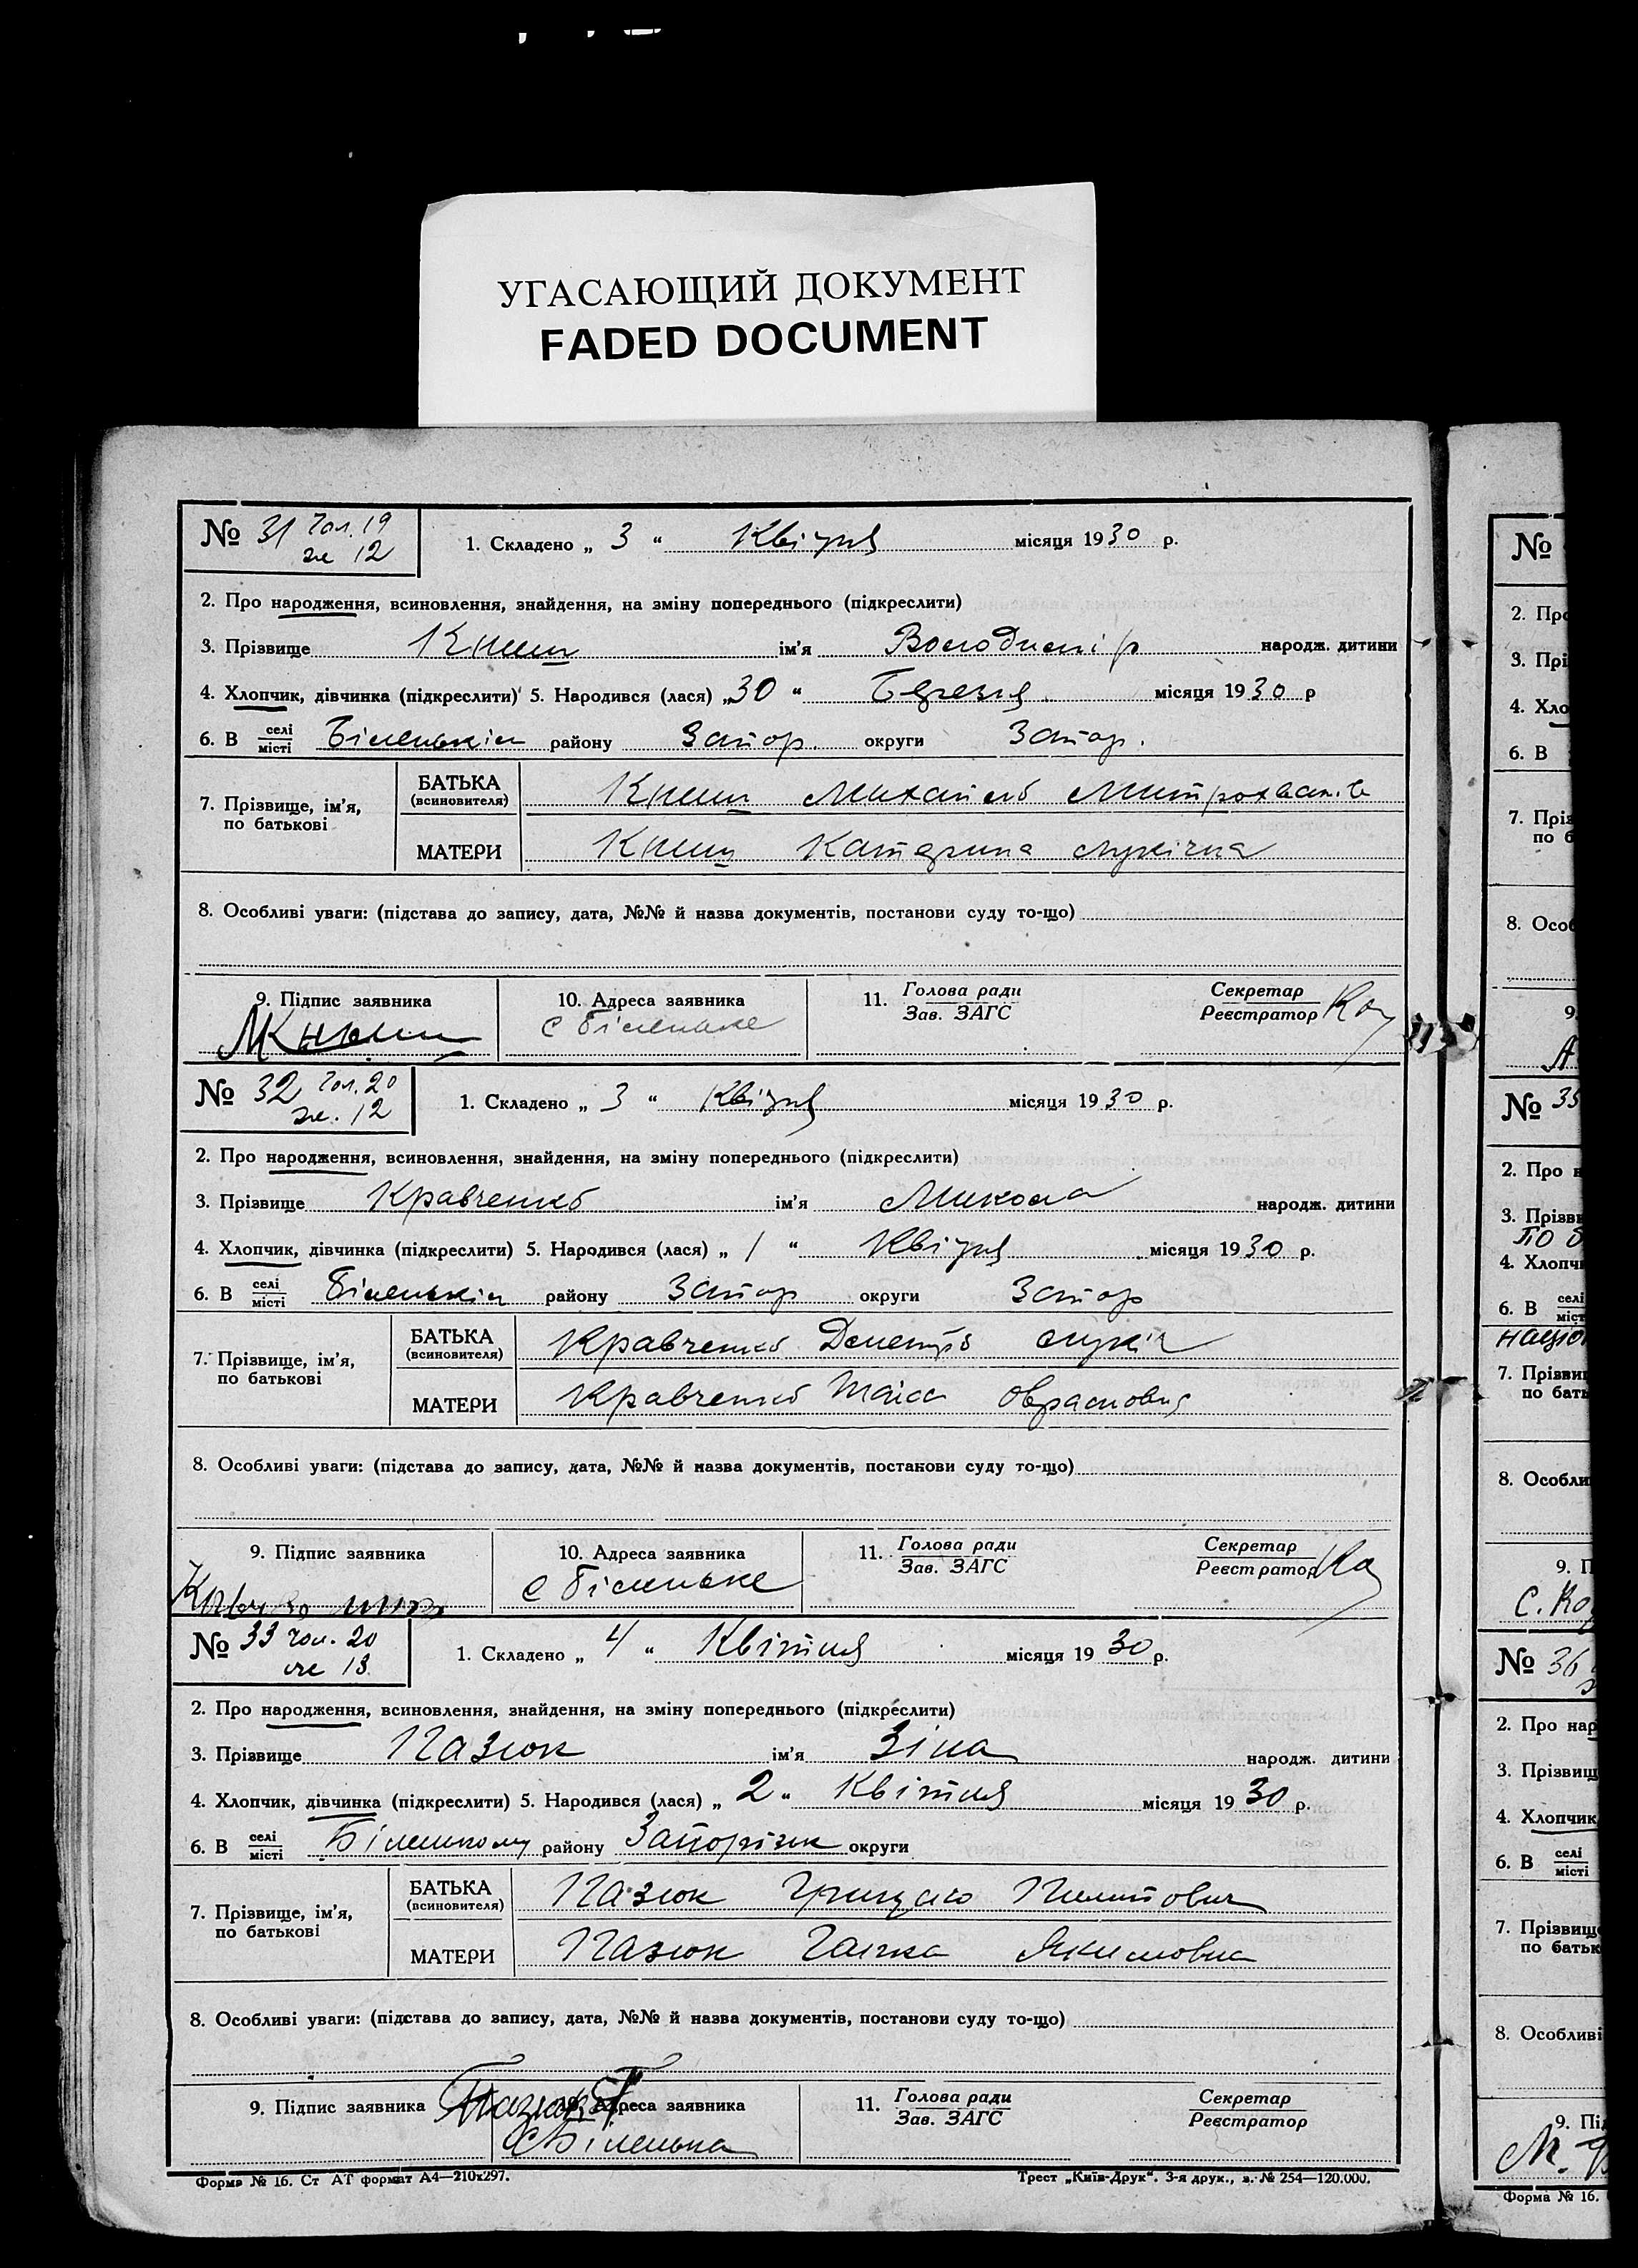 УГАСАЮЩИЙ ДОКУМЕНТ
FADED DOCUMENT
№ 31 чол. 19
же 12
1. Складено „ 3 “ Квітня місяця 1930 р.
2. Про народження, всиновлення, знайдення, на зміну попереднього (підкреслити)
3. Прізвище Книш ім'я Володимір народж. дитини
4. Хлопчик, дівчинка (підкреслити) 5. Народився (лася) „30 “ Березня місяця 1930 р
6. В селі/місті Біленькім району Запор. округи Запор.
7. Прізвище, ім'я, по батькові
БАТЬКА (всиновителя) Книш Михайло Митрохванів
МАТЕРИ Книш Катерина Лукічна
8. Особливі уваги: (підстава до запису, дата, №№ й назва документів, постанови суду то-що)
9. Підпис заявника 10. Адреса заявника 11. Голова ради/Зав. ЗАГС Секретар/Реєстратор
МКныш с Біленьке
№ 32 чол. 20
же. 12
1. Складено „ 3 “ Квітня місяця 1930 р.
2. Про народження, всиновлення, знайдення, на зміну попереднього (підкреслити)
3. Прізвище Кравченко ім'я Микола народж. дитини
4. Хлопчик, дівчинка (підкреслити) 5. Народився (лася) „ 1 “ Квітня місяця 1930 р.
6. В селі/місті Біленькім району Запор округи Запор
7. Прізвище, ім'я, по батькові
БАТЬКА (всиновителя) Кравченко Деметро Лукіч
МАТЕРИ Кравченко Таіса
8. Особливі уваги: (підстава до запису, дата, №№ й назва документів, постанови суду то-що)
9. Підпис заявника 10. Адреса заявника 11. Голова ради/Зав. ЗАГС Секретар/Реєстратор
с Біленьке
№ 33 чол. 20
же 13
1. Складено „ 4 “ Квітня місяця 19 30 р.
2. Про народження, всиновлення, знайдення, на зміну попереднього (підкреслити)
3. Прізвище Пазюк ім'я Зіна народж. дитини
4. Хлопчик, дівчинка (підкреслити) 5. Народився (лася) „ 2 “ Квітня місяця 19 30 р.
6. В селі/місті Біленькому району Запорізьк округи
7. Прізвище, ім'я, по батькові
БАТЬКА (всиновителя) Пазюк Грицько Пилипович
МАТЕРИ Пазюк Галька Якимовна
8. Особливі уваги: (підстава до запису, дата, №№ й назва документів, постанови суду то-що)
9. Підпис заявника 10. Адреса заявника 11. Голова ради/Зав. ЗАГС Секретар/Реєстратор
Пазюк Г
с Біленька
Форма № 16. Ст АТ формат А4—210х297. Трест „Київ-Друк“. 3-я друк., з. № 254—120.000.
№
2. Про
3. Прі
4. Хло
6. В
7. Пріз
по б
8. Особ
9.
№ 35
2. Про н
3. Прізви
4. Хлопчи
6. В селі/міст
націо
7. Прізвищ
по бать
8. Особли
9. П
С. Ко
№ 36
2. Про нар
3. Прізвищ
4. Хлопчик
6. В селі/місті
7. Прізвище
по батьк
8. Особливі
9. Під
М.
Форма № 16.